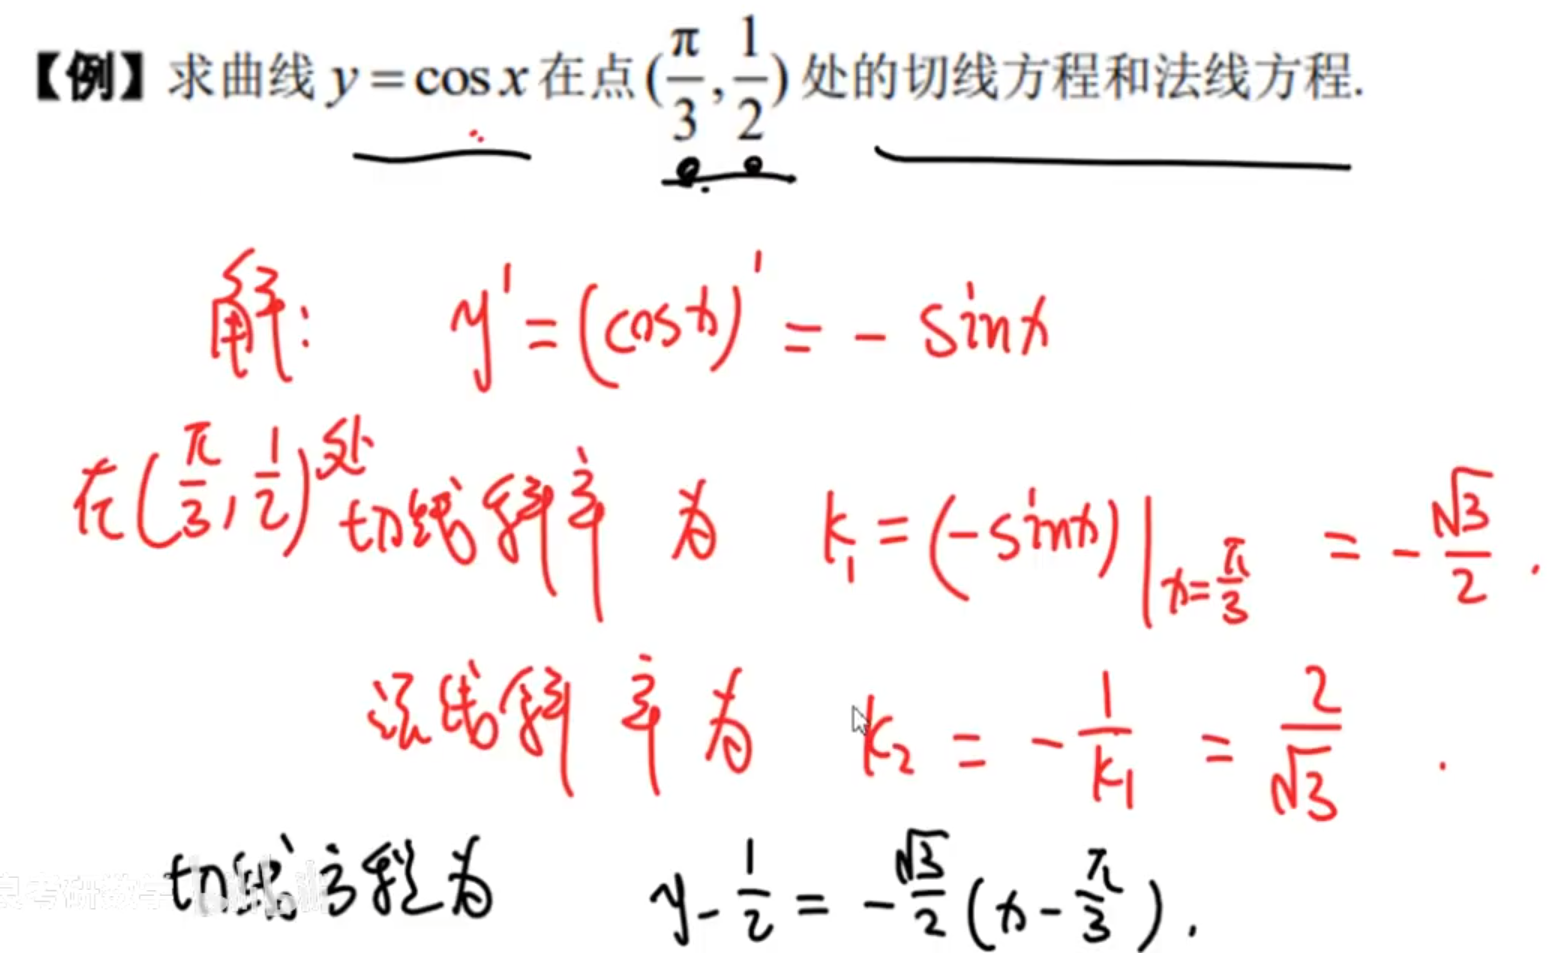 【例】求曲线 y = cos x 在点 (π/3, 1/2) 处的切线方程和法线方程.
解: y' = (cosx)' = - sinx
在(π/3, 1/2)处切线斜率为 k₁ = (-sinx)|x=π/3 = -√3/2 .
法线斜率为 k₂ = - 1/k₁ = 2/√3 .
切线方程为 y - 1/2 = -√3/2 (x - π/3) .
考研数学